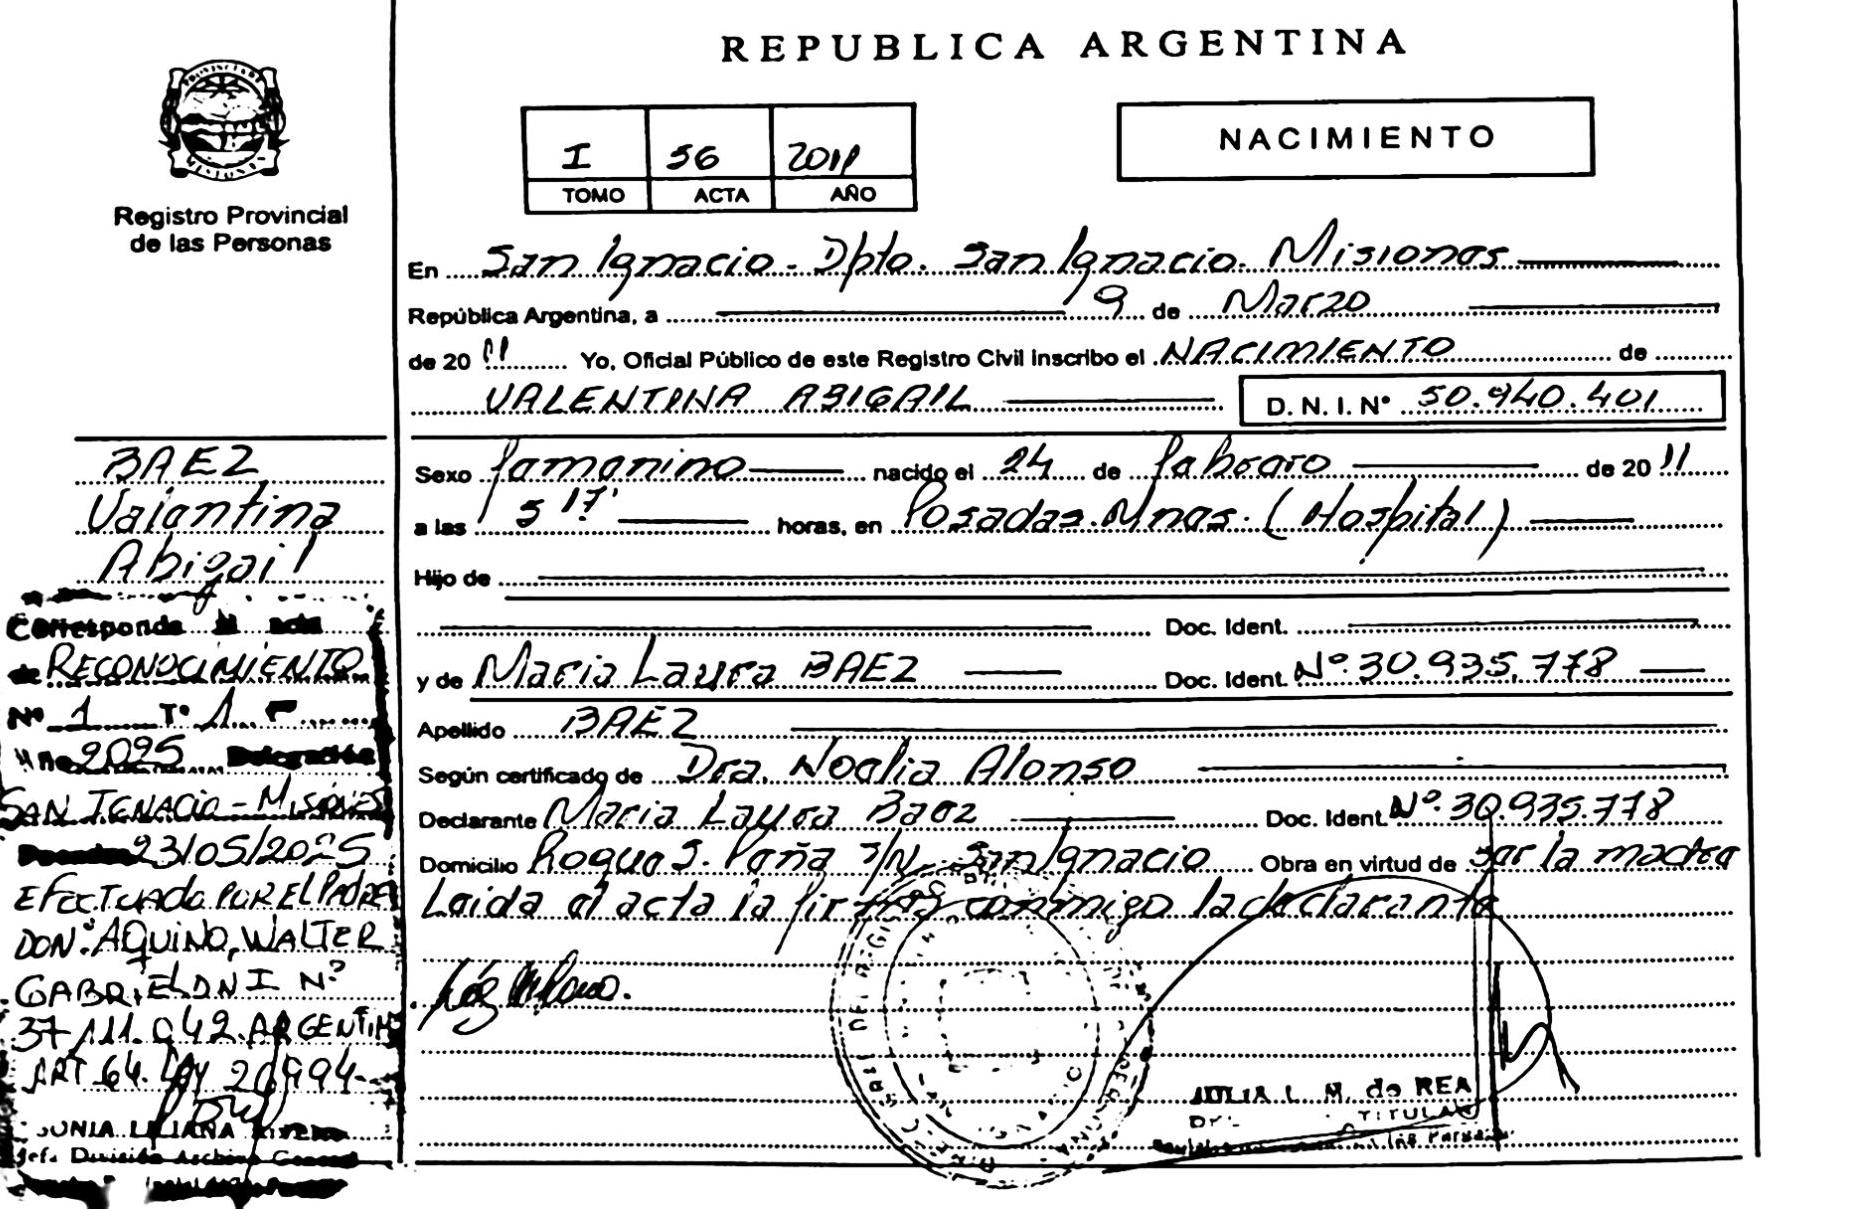 REPUBLICA ARGENTINA
Registro Provincial
de las Personas
I 56 2011
TOMO ACTA AÑO
NACIMIENTO
En San Ignacio - Dpto. San Ignacio - Misiones
República Argentina, a 9 de Marzo
de 2011 Yo, Oficial Público de este Registro Civil inscribo el NACIMIENTO de
VALENTINA ABIGAIL D. N. I. Nº 50.940.401
Sexo femenino nacido el 24 de febrero de 2011
a las 5 17' horas, en Posadas. Mnes. (Hospital)
Hijo de
Doc. Ident.
y de Maria Laura BAEZ Doc. Ident. Nº 30.935.778
Apellido BAEZ
Según certificado de Dra. Noelia Alonso
Declarante Maria Laura Baez Doc. Ident. Nº 30.935.778
Domicilio Roque S. Peña S/N - San Ignacio Obra en virtud de ser la madre
Leida el acta la firma conmigo la declarante
JULIA L. M. de REA
TITULAR
BAEZ
Valentina
Abigail
Corresponde al acta
de RECONOCIMIENTO
Nº 1 Tº 1 F
Año 2025 Delegación
SAN IGNACIO - MISIONES
23/05/2025
EFECTUADO POR EL PADRE
DON: AQUINO, WALTER
GABRIEL DNI Nº
37.111.042. ARGENTINO
ART 64. Ley 26994
SONIA LILIANA
Jefa División Archivo General